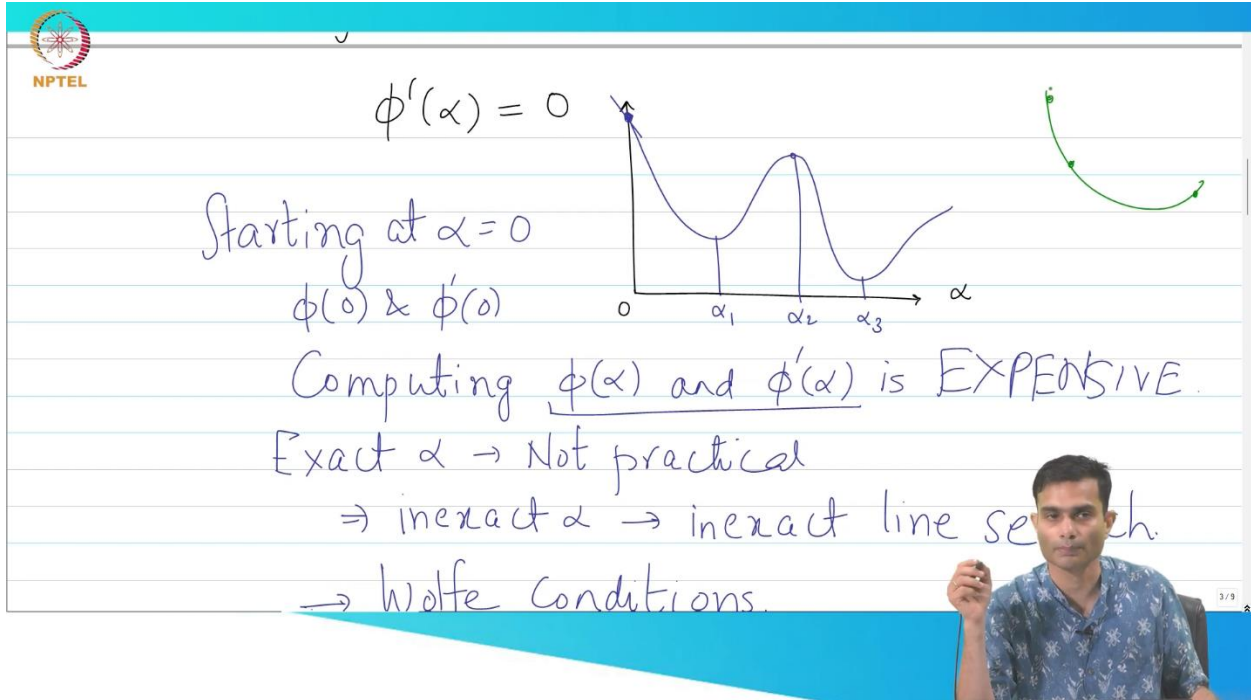 NPTEL
ϕ'(α) = 0
Starting at α = 0
ϕ(0) & ϕ'(0)
0 α₁ α₂ α₃ α
Computing ϕ(α) and ϕ'(α) is EXPENSIVE.
Exact α → Not practical
⇒ inexact α → inexact line se ch.
→ Wolfe Conditions.
3 / 9